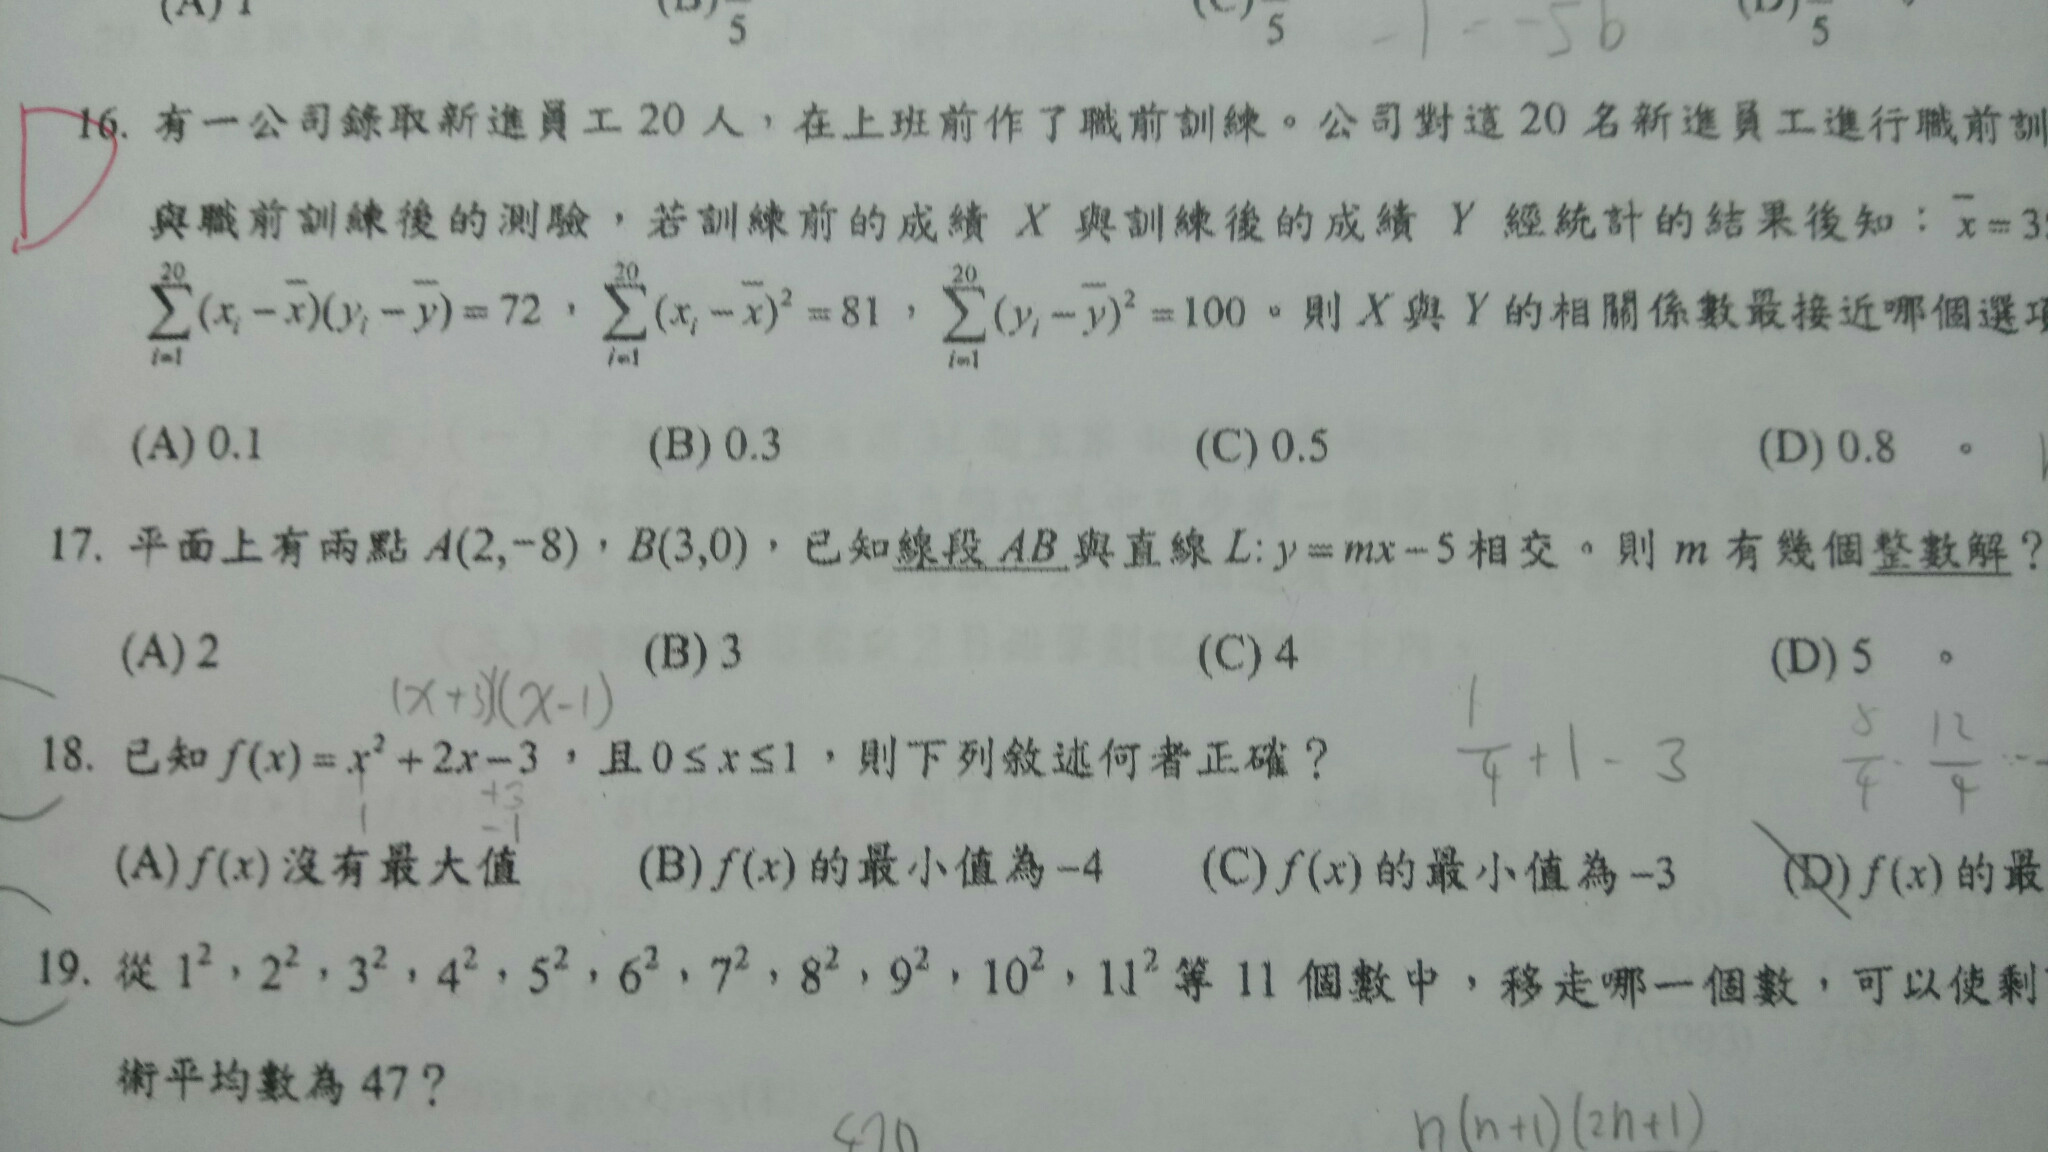 (A) 1 (B) 5 (C) 5 -1 = -5b (D) 5 。
16. 有一公司錄取新進員工 20 人,在上班前作了職前訓練。公司對這 20 名新進員工進行職前訓
與職前訓練後的測驗,若訓練前的成績 X 與訓練後的成績 Y 經統計的結果後知: x̄ = 3
∑_{i=1}^{20}(x_i − x̄)(y_i − ȳ) = 72 , ∑_{i=1}^{20}(x_i − x̄)² = 81 , ∑_{i=1}^{20}(y_i − ȳ)² = 100 。則 X 與 Y 的相關係數最接近哪個選項
(A) 0.1 (B) 0.3 (C) 0.5 (D) 0.8 。
17. 平面上有兩點 A(2,−8),B(3,0),已知線段 AB 與直線 L: y = mx − 5 相交。則 m 有幾個整數解?
(A) 2 (B) 3 (C) 4 (D) 5 。
(x+3)(x-1)
18. 已知 f(x) = x² + 2x − 3 ,且 0 ≤ x ≤ 1 ,則下列敘述何者正確? 1/4 + 1 - 3 8/4 - 12/4
1 +3
1 -1
(A) f(x) 沒有最大值 (B) f(x) 的最小值為 −4 (C) f(x) 的最小值為 −3 (D) f(x) 的最
19. 從 1²,2²,3²,4²,5²,6²,7²,8²,9²,10²,11² 等 11 個數中,移走哪一個數,可以使剩
術平均數為 47?
470 n(n+1)(2n+1)